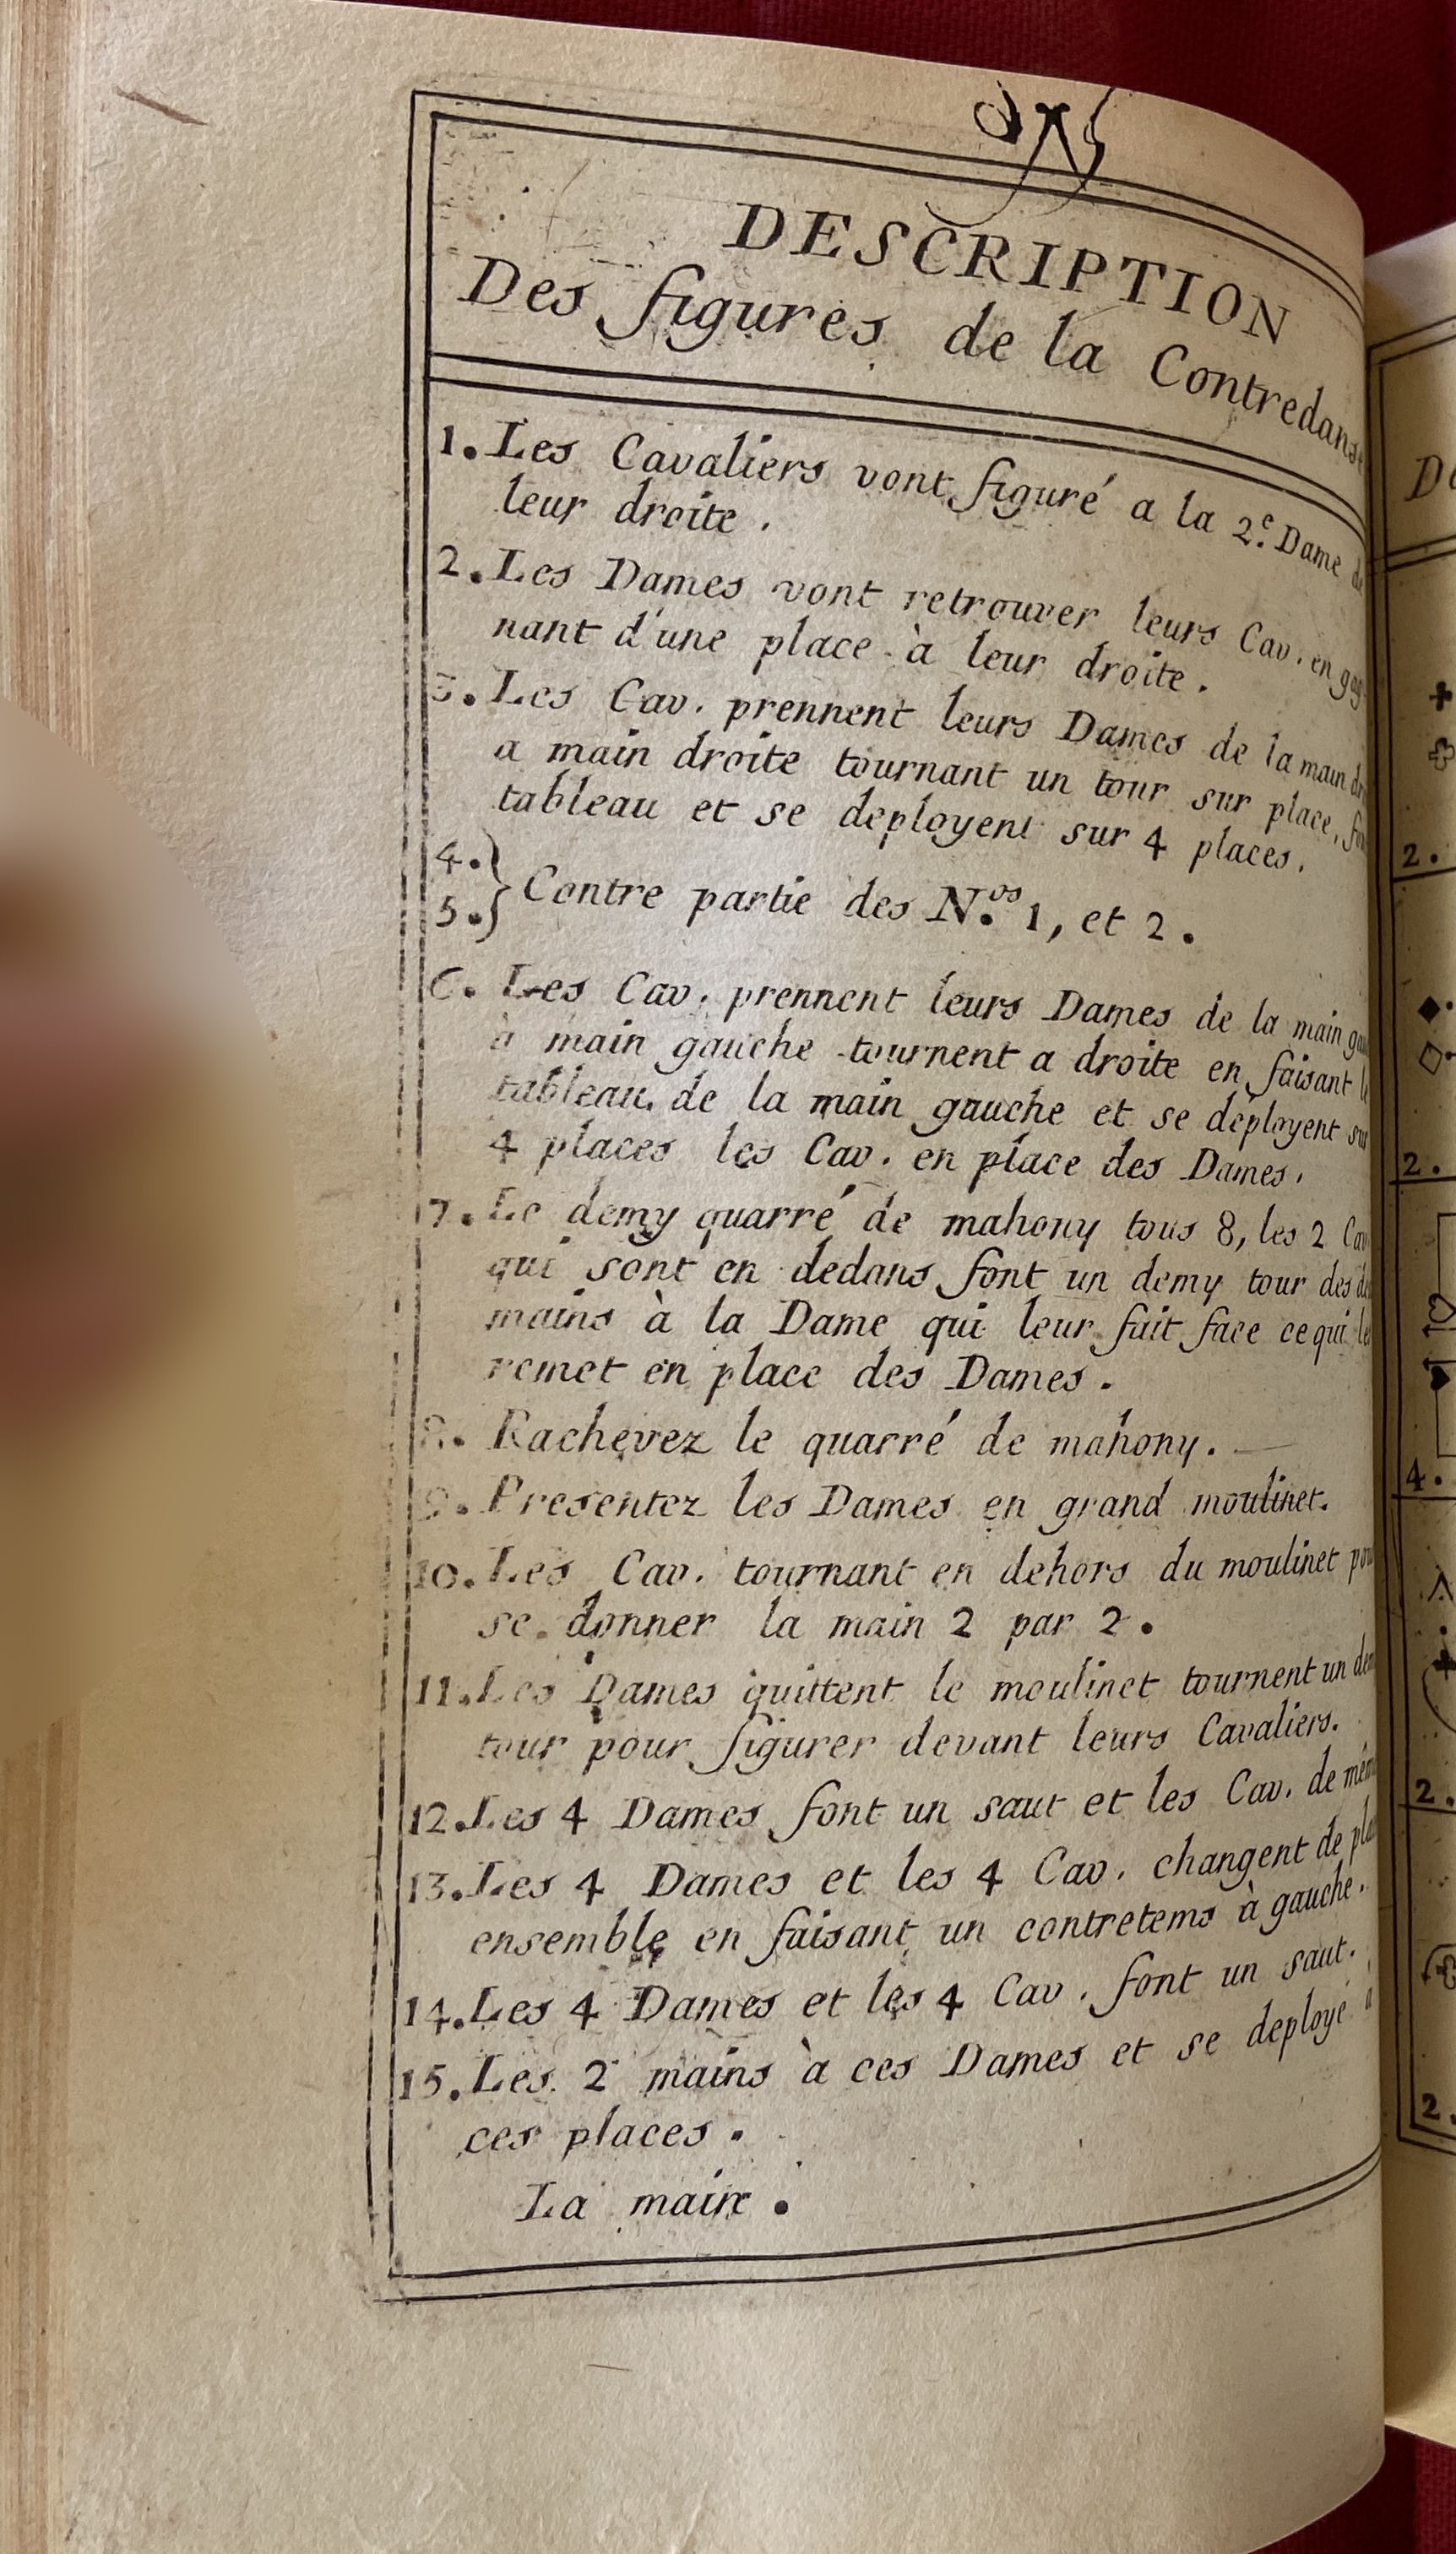 DESCRIPTION
Des figures de la Contredanse
1. Les Cavaliers vont figuré a la 2.e Dame
leur droite.
2. Les Dames vont retrouver leurs Cav. en
nant d'une place à leur droite.
3. Les Cav. prennent leurs Dames de la main
a main droite tournant un tour sur place,
tableau et se deployent sur 4 places.
4.}
5.} Contre partie des N.os 1, et 2.
6. Les Cav. prennent leurs Dames de la main
à main gauche tournent a droite en faisant
tableau de la main gauche et se deployent
4 places les Cav. en place des Dames.
7. Le demy quarré de mahony tous 8, les 2
qui sont en dedans font un demy tour des
mains à la Dame qui leur fait face ce qui
remet en place des Dames.
8. Rachevez le quarré de mahony.
9. Presentez les Dames en grand moulinet.
10. Les Cav. tournant en dehors du moulinet
se donner la main 2 par 2.
11. Les Dames quittent le moulinet tournent un
tour pour figurer devant leurs Cavaliers.
12. Les 4 Dames font un saut et les Cav. de
13. Les 4 Dames et les 4 Cav. changent de
ensemble en faisant un contretems à gauche.
14. Les 4 Dames et les 4 Cav. font un saut.
15. Les 2 mains à ces Dames et se deployé a
ces places.
La main.
2.
2.
4.
2.
2.